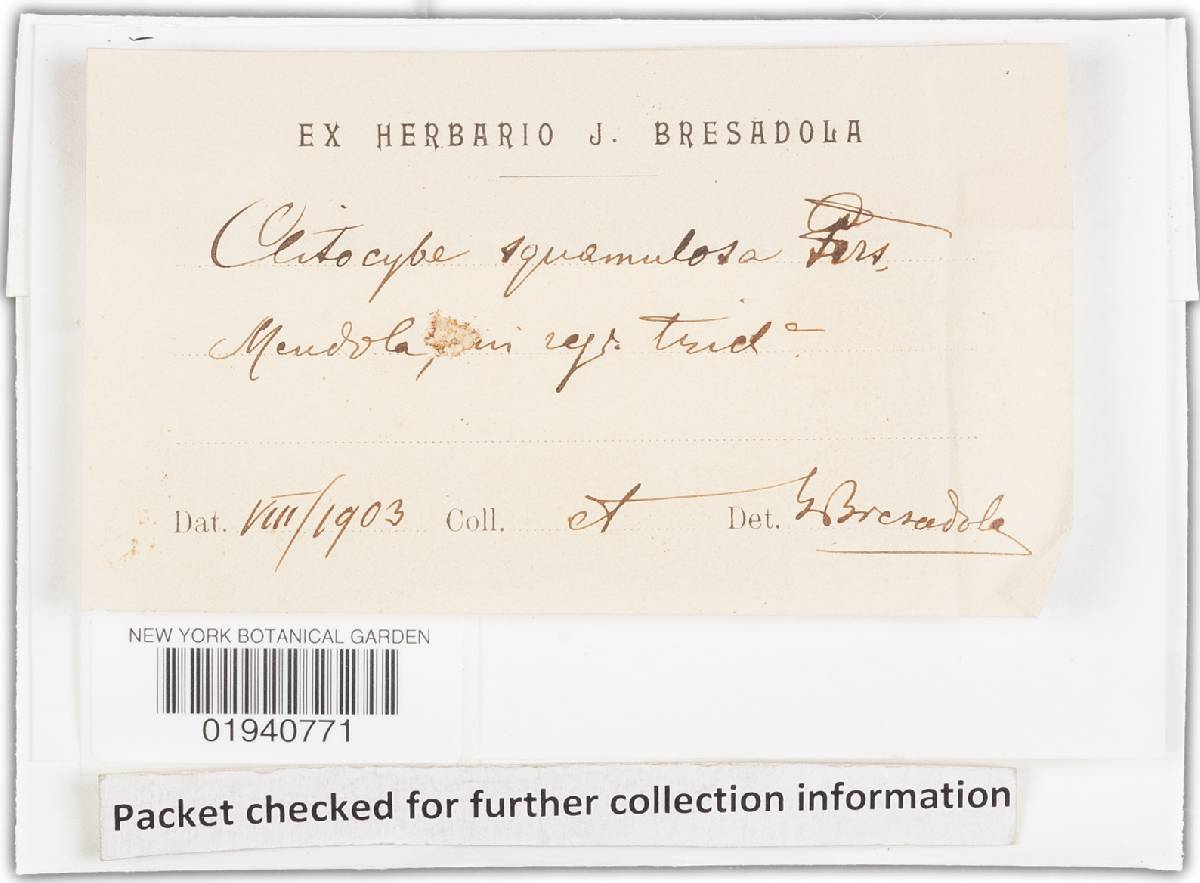 EX HERBARIO J. BRESADOLA
Clitocybe squamulosa Pers.
Mendola, in reg. trid.ª
Dat. VIII/1903 Coll. et Det. G Bresadola
NEW YORK BOTANICAL GARDEN
01940771
Packet checked for further collection information